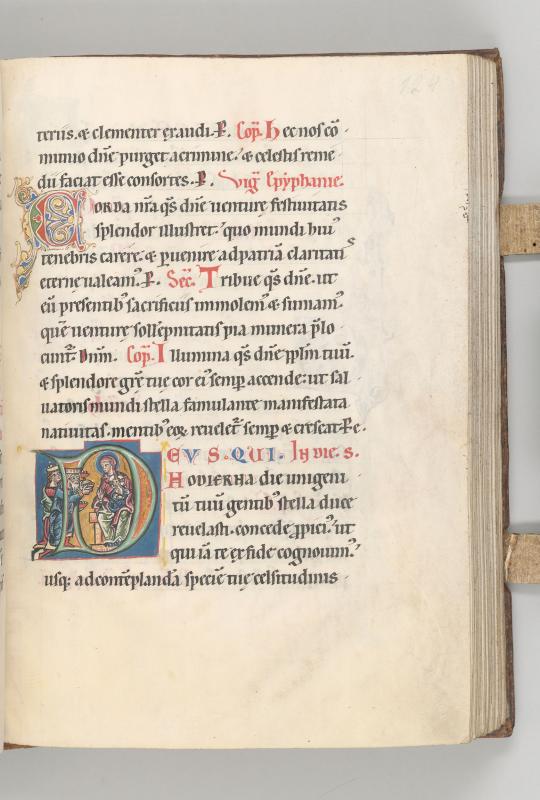 124
teriis. & clementer exaudi. P. Cop̄. Hec nos cō-
munio dn̄e purget a crimine. & celestis reme-
dii faciat esse consortes. P. Vig̅ Epyphanie.
Corda nr̄a q̄s dn̄e venture festivitatis
splendor illustret. quo mundi huiꝰ
tenebris carere. & pervenire ad patriā claritatis
eterne valeamꝰ. P. Sec̄. Tribue q̄s dn̄e. ut
eū presentibꝰ sacrificiis immolemꝰ & sumamꝰ.
quē venture sollēpnitatis pia munera p̄lo-
cunt᷑. Dn̄m. Cop̄. Illumina q̄s dn̄e pp̄lm tuū.
& splendore grē tue cor eiꝰ semp accende: ut sal-
vatoris mundi stella famulante manifestata
nativitas. mentibꝰ eoꝝ reuelet᷑ semp & crescat. Pe.
DEUS. QUI. In die. s.
Hodierna die unigeni-
tū tuū gentibꝰ stella duce
revelasti. concede ꝓpiciꝰ. ut
qui iā te ex fide cognovimꝰ.
usq; ad contēplandā speciē tue celsitudinis-